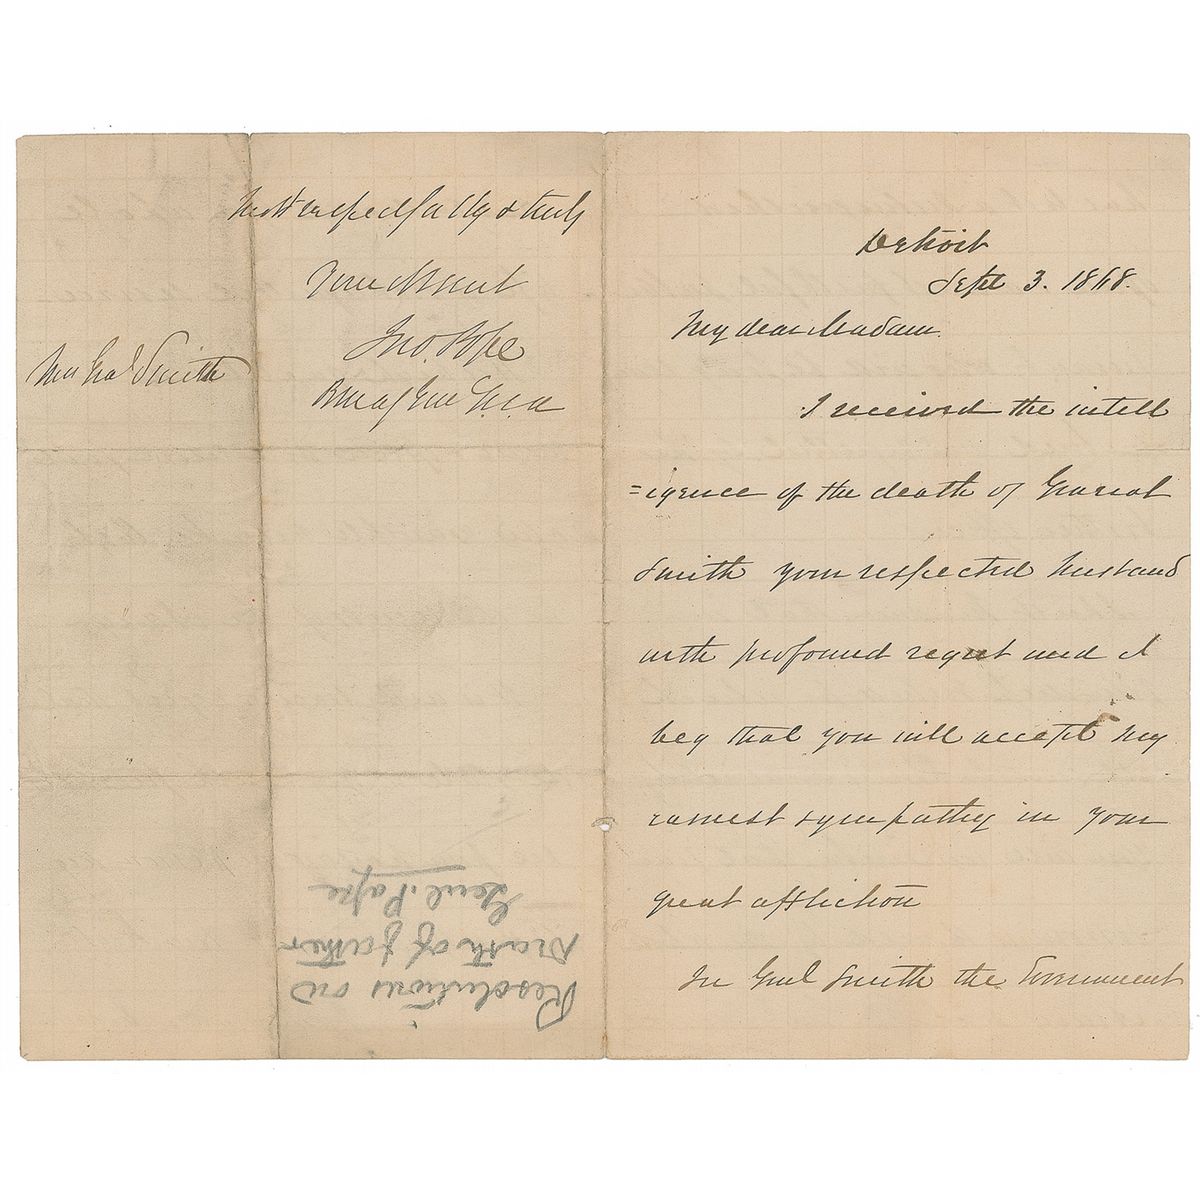 Detroit
Sept 3. 1868.
My dear Madam.
I received the intell
=igence of the death of General
Smith your respected husband
with profound regret and I
beg that you will accept my
earnest sympathy in your
great affliction
In Genl Smith the Government
Most respectfully & truly
Your Obt Servt
Jno. Pope
Bvt Maj Gen U.S.A
Mrs Genl Smith
Resolutions on
Death of father
Genl. Pope